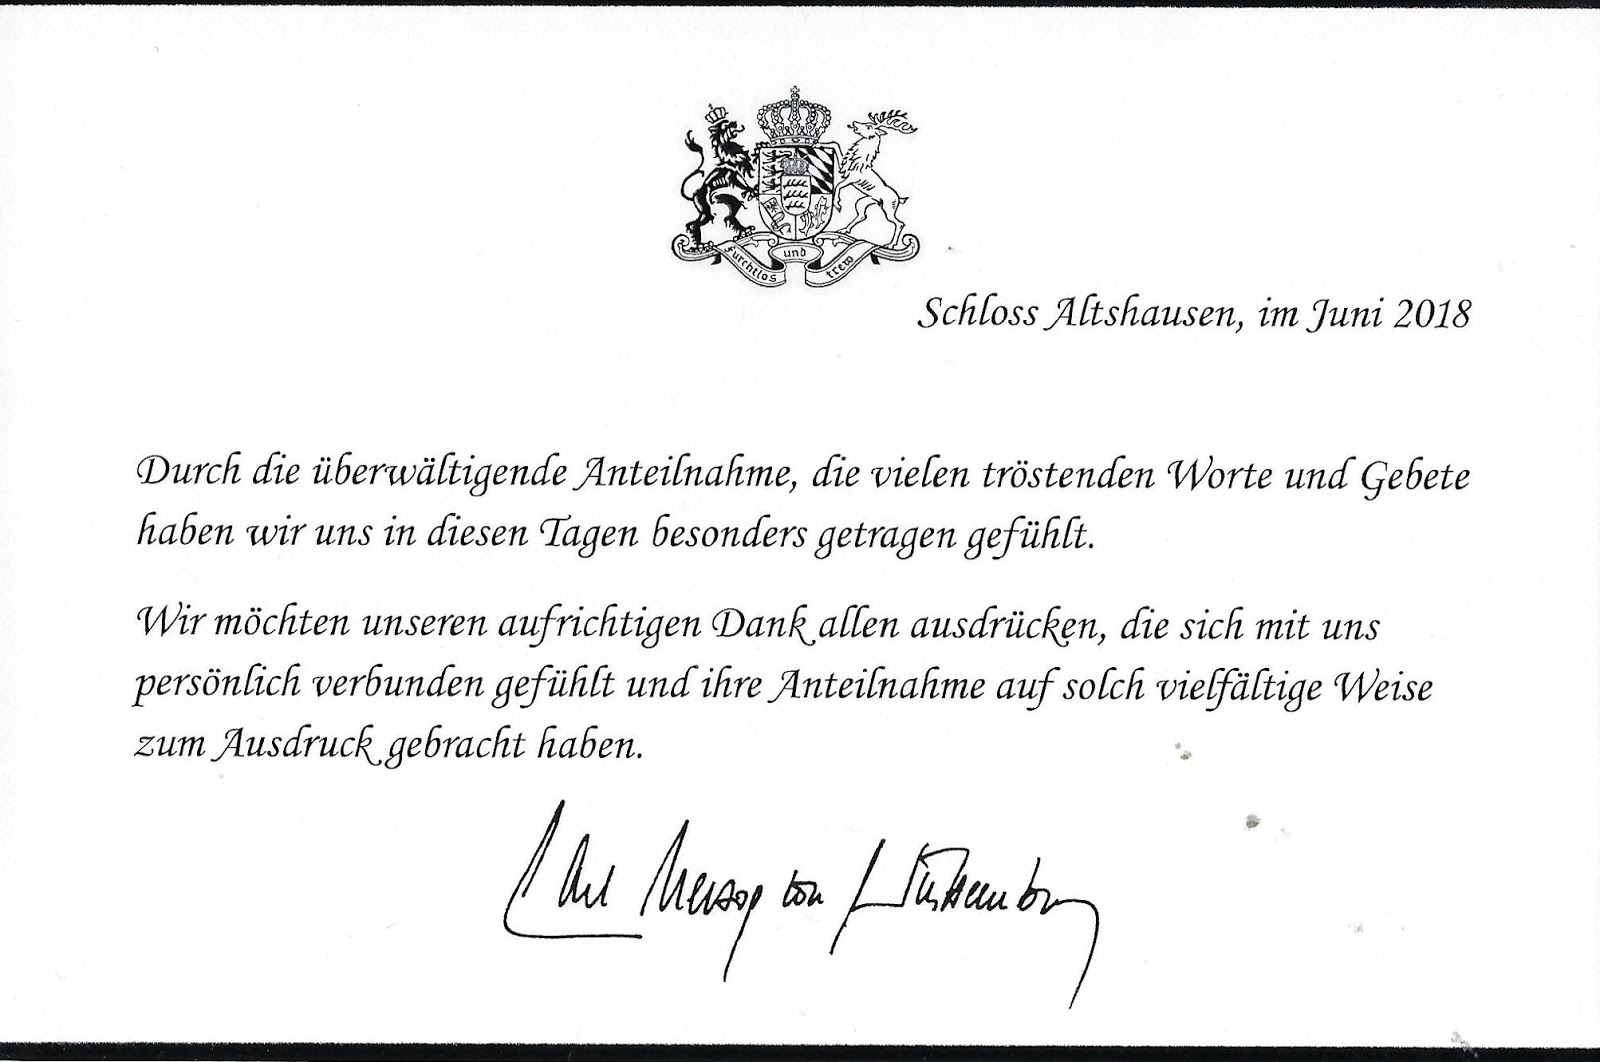 furchtlos und trew
Schloss Altshausen, im Juni 2018
Durch die überwältigende Anteilnahme, die vielen tröstenden Worte und Gebete
haben wir uns in diesen Tagen besonders getragen gefühlt.
Wir möchten unseren aufrichtigen Dank allen ausdrücken, die sich mit uns
persönlich verbunden gefühlt und ihre Anteilnahme auf solch vielfältige Weise
zum Ausdruck gebracht haben.
Carl Herzog von Württemberg